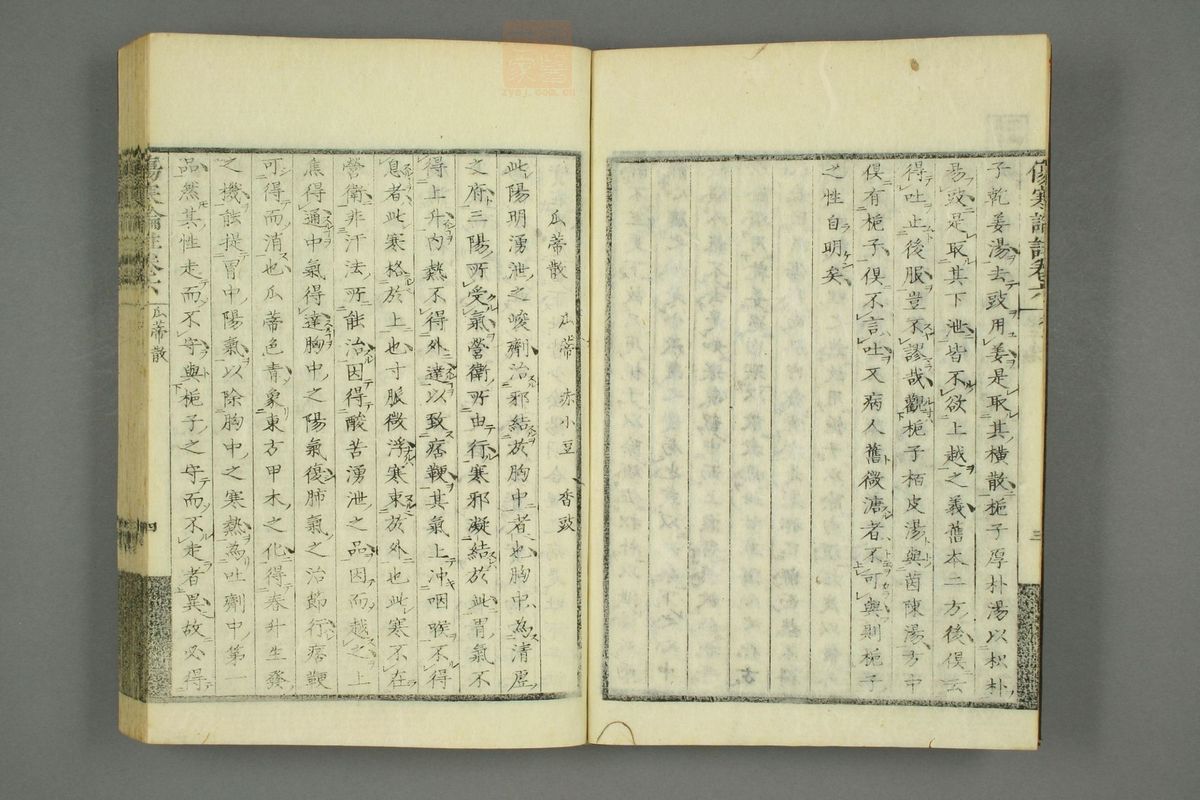 傷寒論註卷六
子乾姜湯去豉用姜是取其橫散梔子厚朴湯以枳朴
易豉是取其下泄皆不欲上越之義舊本二方後俱云
得吐止後服豈不謬哉觀梔子栢皮湯與茵陳湯方中
俱有梔子俱不言吐又病人舊微溏者不可與則梔子
之性自明矣
三
瓜蒂散 瓜蒂 赤小豆 香豉
此陽明湧泄之峻劑治邪結於胸中者也胸中為清虛
之府三陽所受氣營衛所由行寒邪凝結於此胃氣不
得上升內熱不得外達以致痞鞕其氣上冲咽喉不得
息者此寒格於上也寸脈微浮寒束於外也此寒不在
營衛非汗法所能治因得酸苦湧泄之品因而越之上
焦得通中氣得達胸中之陽氣復肺氣之治節行痞鞕
可得而消也瓜蒂色青象東方甲木之化得春升生發
之機能提胃中陽氣以除胸中之寒熱為吐劑中第一
品然其性走而不守與梔子之守而不走者異故必得
傷寒論註卷六 瓜蒂散
四
家醫
zysj.com.cn